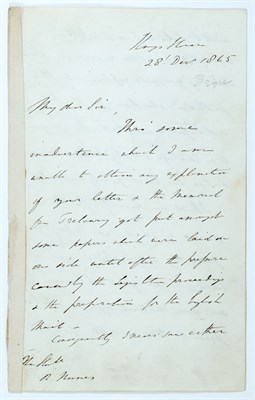 Kings House
28' Dec 1865
My dear Sir,
Thro' some
inadvertence which I am
unable to obtain any explanation
of your letter & the Memorial
from Trelawny got put amongst
some papers which were laid on
one side until after the pressure
caused by the Legislative proceedings
& the preparation for the English
Mail -
Consequently I never saw either
The Honble
R Nunes